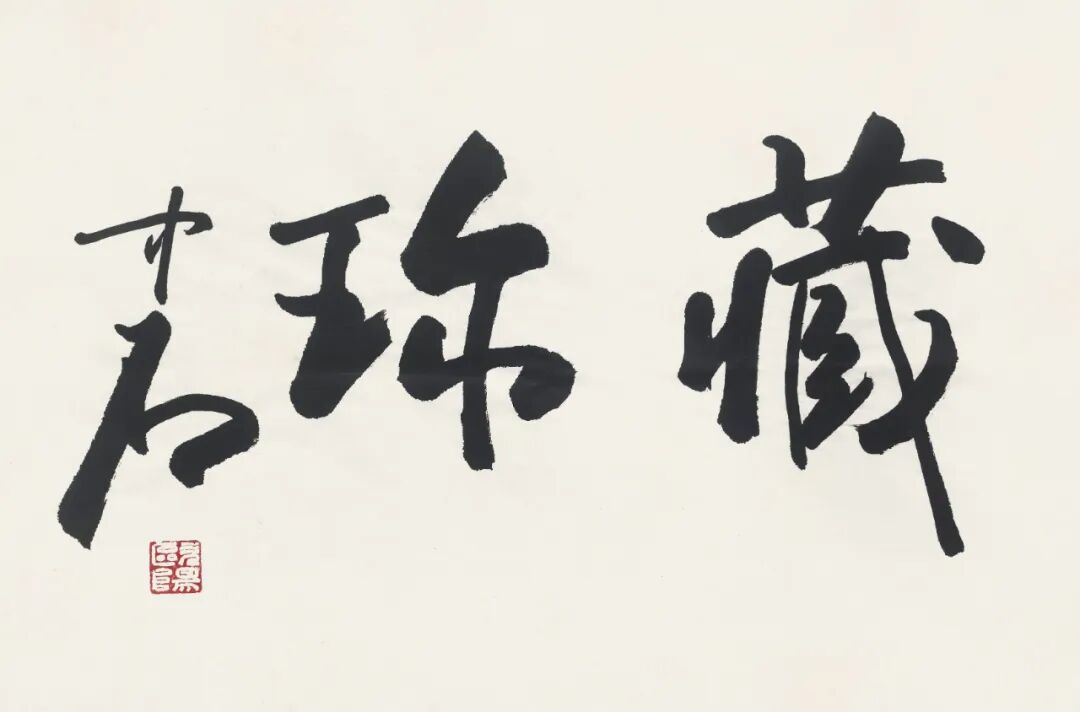 藏珎
中石